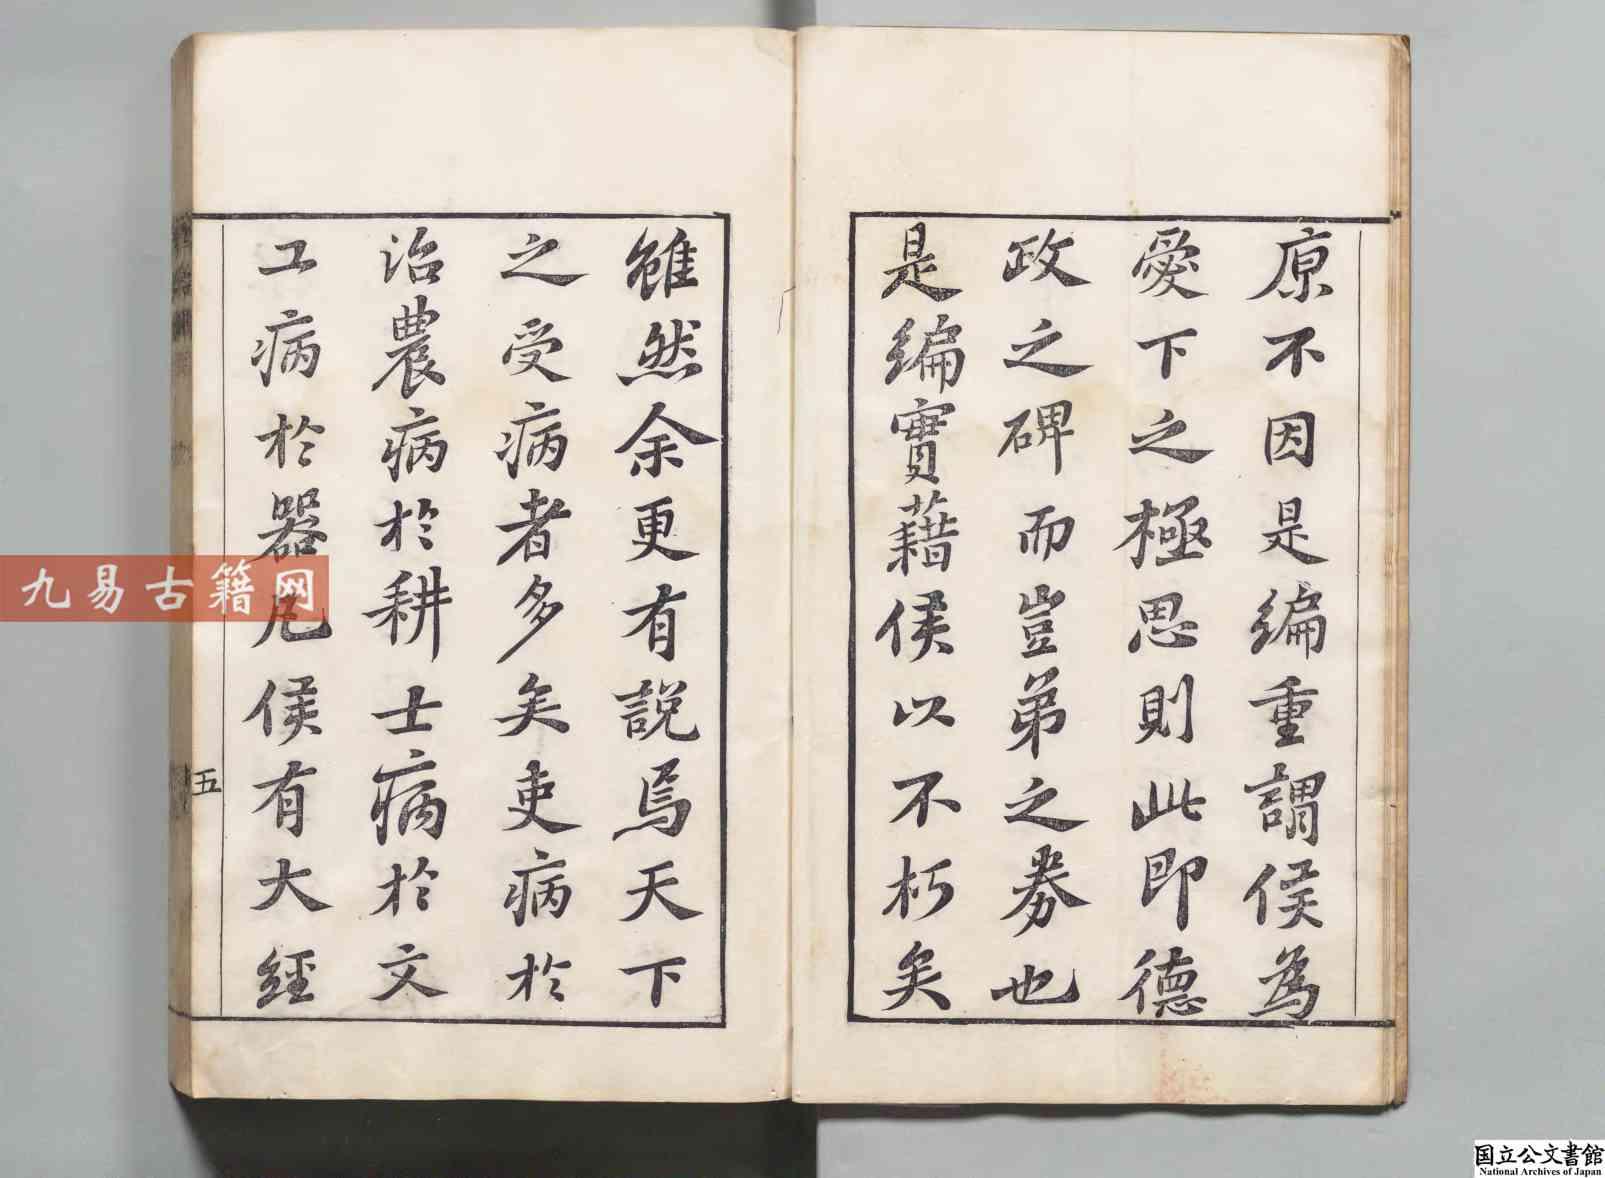 原不因是編重謂侯為
愛下之極思則此即德
政之碑而豈弟之券也
是編實藉侯以不朽矣
雖然余更有說焉天下
之受病者多矣吏病於
治農病於耕士病於文
工病於器凡侯有大經
五
九易古籍网
国立公文書館
National Archives of Japan